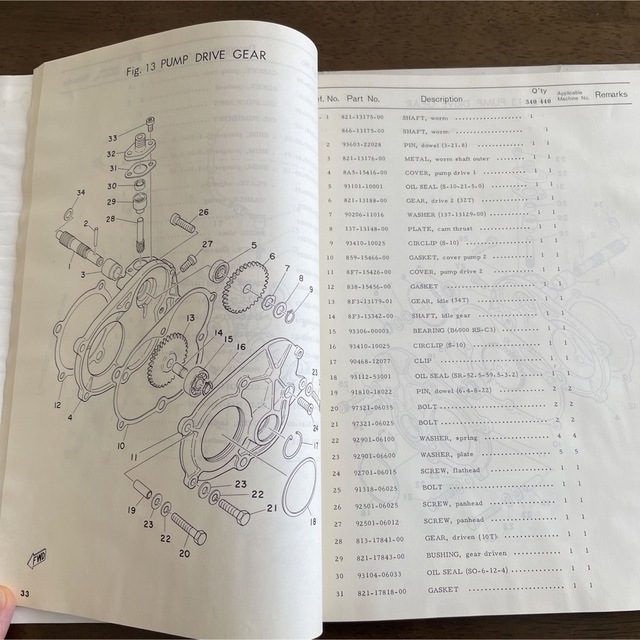 Fig. 13 PUMP DRIVE GEAR
33
32
31
30
29
28
34
26
2
27
5
1
3
6
7
8
9
13
14
15
16
12
4
10
11
23
24
17
18
23
22
21
19
23
22
20
FWD
33
Ref. No. Part No. Description Q'ty Applicable Machine No. Remarks
340 440
1 821-13175-00 SHAFT, worm 1
866-13175-00 SHAFT, worm 1
2 93603-22028 PIN, dowel (3-21.8) 1 1
3 821-13176-00 METAL, worm shaft outer 1 1
4 8A5-15416-00 COVER, pump drive 1 1 1
5 93101-10001 OIL SEAL (S-10-21-5.0) 1 1
6 821-13188-00 GEAR, drive 2 (32T) 1 1
7 90206-11016 WASHER (137-13129-00) 1 1
8 137-13148-00 PLATE, cam thrust 1 1
9 93410-10025 CIRCLIP (S-10) 1 1
10 859-15466-00 GASKET, cover pump 2 1 1
11 8F7-15426-00 COVER, pump drive 2 1 1
12 838-15456-00 GASKET 1 1
13 8F3-13179-01 GEAR, idle (34T) 1 1
14 8F3-13342-00 SHAFT, idle gear 1 1
15 93306-00003 BEARING (B6000 RS-C3) 1 1
16 93410-10025 CIRCLIP (S-10) 1 1
17 90468-12077 CLIP 1 1
18 93112-53001 OIL SEAL (SR-52.5-59.5-3.2) 1 1
19 91810-18022 PIN, dowel (6-4.8-22) 2 2
20 97321-06035 BOLT 2 2
21 97321-06025 BOLT 2 2
22 92901-06100 WASHER, spring 4 4
23 92901-06600 WASHER, plate 5 5
24 92701-06015 SCREW, flathead 1 1
25 91318-06025 BOLT 1 1
26 92501-06025 SCREW, panhead 1 1
27 92501-06012 SCREW, panhead 1 1
28 813-17841-00 GEAR, driven (10T) 1 1
29 821-17843-00 BUSHING, gear driven 1 1
30 93104-06033 OIL SEAL (SO-6-12-4) 1 1
31 821-17818-00 GASKET 1 1